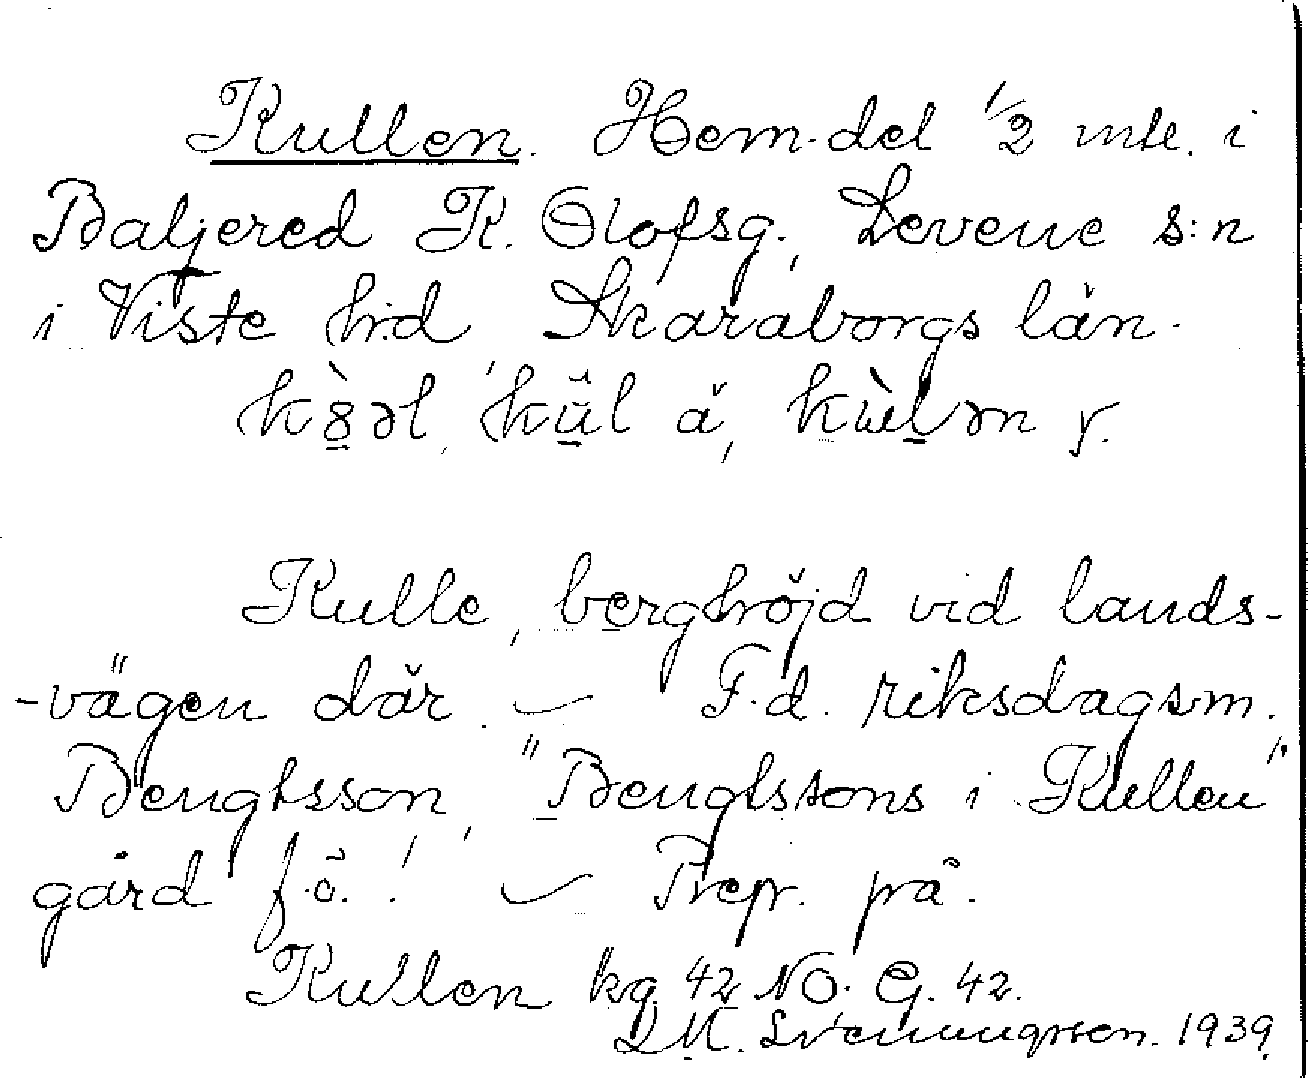 Kullen. Hem.del 1/2 mtl. i
Baljered K. Olofsg., Levene s:n
i Viste hrd Skaraborgs län.
Kulle, berghöjd vid lands-
-vägen där. — F.d. riksdagsm.
Bengtsson, "Bengtssons i Kullen"
gård f.ö.! — Prep. på.
Kullen kg 42 NO. G. 42.
1939.